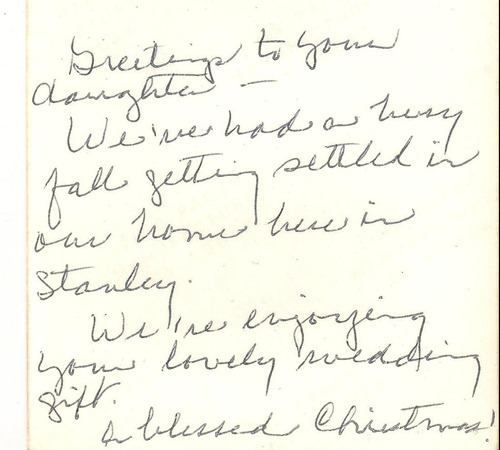 Greetings to your
daughter —
We've had a busy
fall getting settled in
our home here in
Stanley.
We're enjoying
your lovely wedding
gift.
A blessed Christmas!